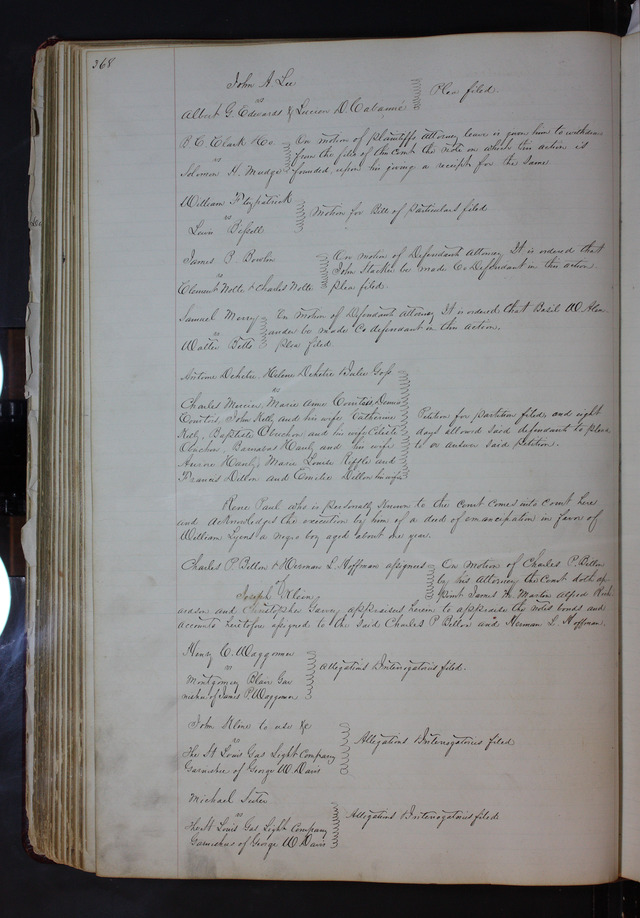 368
John A. Lee
vs
Albert G. Edwards & Lucien D. Cabanné
Plea filed.
B. C. Clark & Co.
vs
Solomon H. Mudge
On motion of plaintiffs Attorney leave is given him to withdraw
from the files of this Court the note on which this action is
founded, upon his giving a receipt for the same.
William Fitzpatrick
vs
Lewis
Motion for Bill of Particulars filed
James B. Bowlin
vs
Clement Nolte & Charles Nolte
On motion of Defendants Attorney It is ordered that
John be made Co Defendant in this action.
Plea filed.
Samuel Merry
vs
Walter Betts
On motion of Defendants Attorney It is ordered that Basil W. Alex
ander be made Co defendant in this action.
Plea filed.
Antoine Dehetre, Helene Dehetre & Jules
vs
Charles Mercier, Marie Anne Courtois, Dennis
Courtois, John Kelly and his wife Catherine
Kelly, Baptiste Obuchon and his wife
Obuchon, Barnabas Hanly and his wife
Aurore Hanly, Marie Louise Riffle and
Francis Dillon and Emelie Dillon his wife
Petition for partition filed and eight
days allowed said defendants to plead
to or answer said petition.
Rene Paul who is personally known to the Court comes into Court here
and acknowledges the execution by him of a deed of emancipation in favor of
William Lyons a negro boy aged about one year.
Charles P. Billon & Herman L. Hoffman assignees
of
Joseph Klein
On motion of Charles P. Billon
by his Attorney the Court doth ap
point James H. Martin Alfred Rich
ardson and Christopher Garvey appraisers herein to appraise the notes bonds and
accounts heretofore assigned to the said Charles P. Billon and Herman L. Hoffman.
Henry C. Waggoner
vs
Montgomery Blair Gar
nishee of James P. Waggoner
Allegations & Interrogatories filed.
John Kline to use &c
vs
The St Louis Gas Light Company
Garnishee of George W. Davis
Allegations & Interrogatories filed
Michael Suter
vs
The St Louis Gas Light Company
Garnishee of George W. Davis
Allegations & Interrogatories filed.